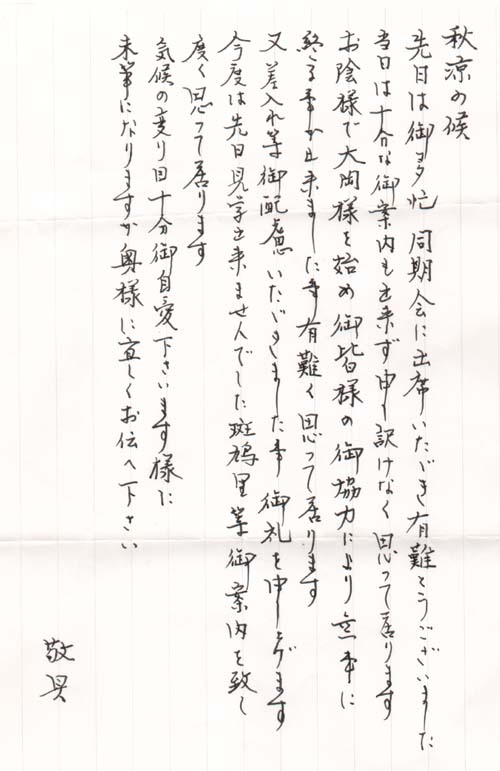 秋涼の候
先日は御多忙 同期会に出席いたゞき有難とうございました
当日は十分な御案内も出来ず申し訳けなく思って居ります
お陰様で大岡様を始め御皆様の御協力により無事に
終る事が出来ました事有難く思って居ります
又差入れ等御配慮いたゞきました事 御礼を申し上げます
今度は先日見学出来ませんでした斑鳩里等御案内を致し
度く思って居ります
気候の変り目十分御自愛下さいます様に
末筆になりますが奥様に宜しくお伝へ下さい
敬具